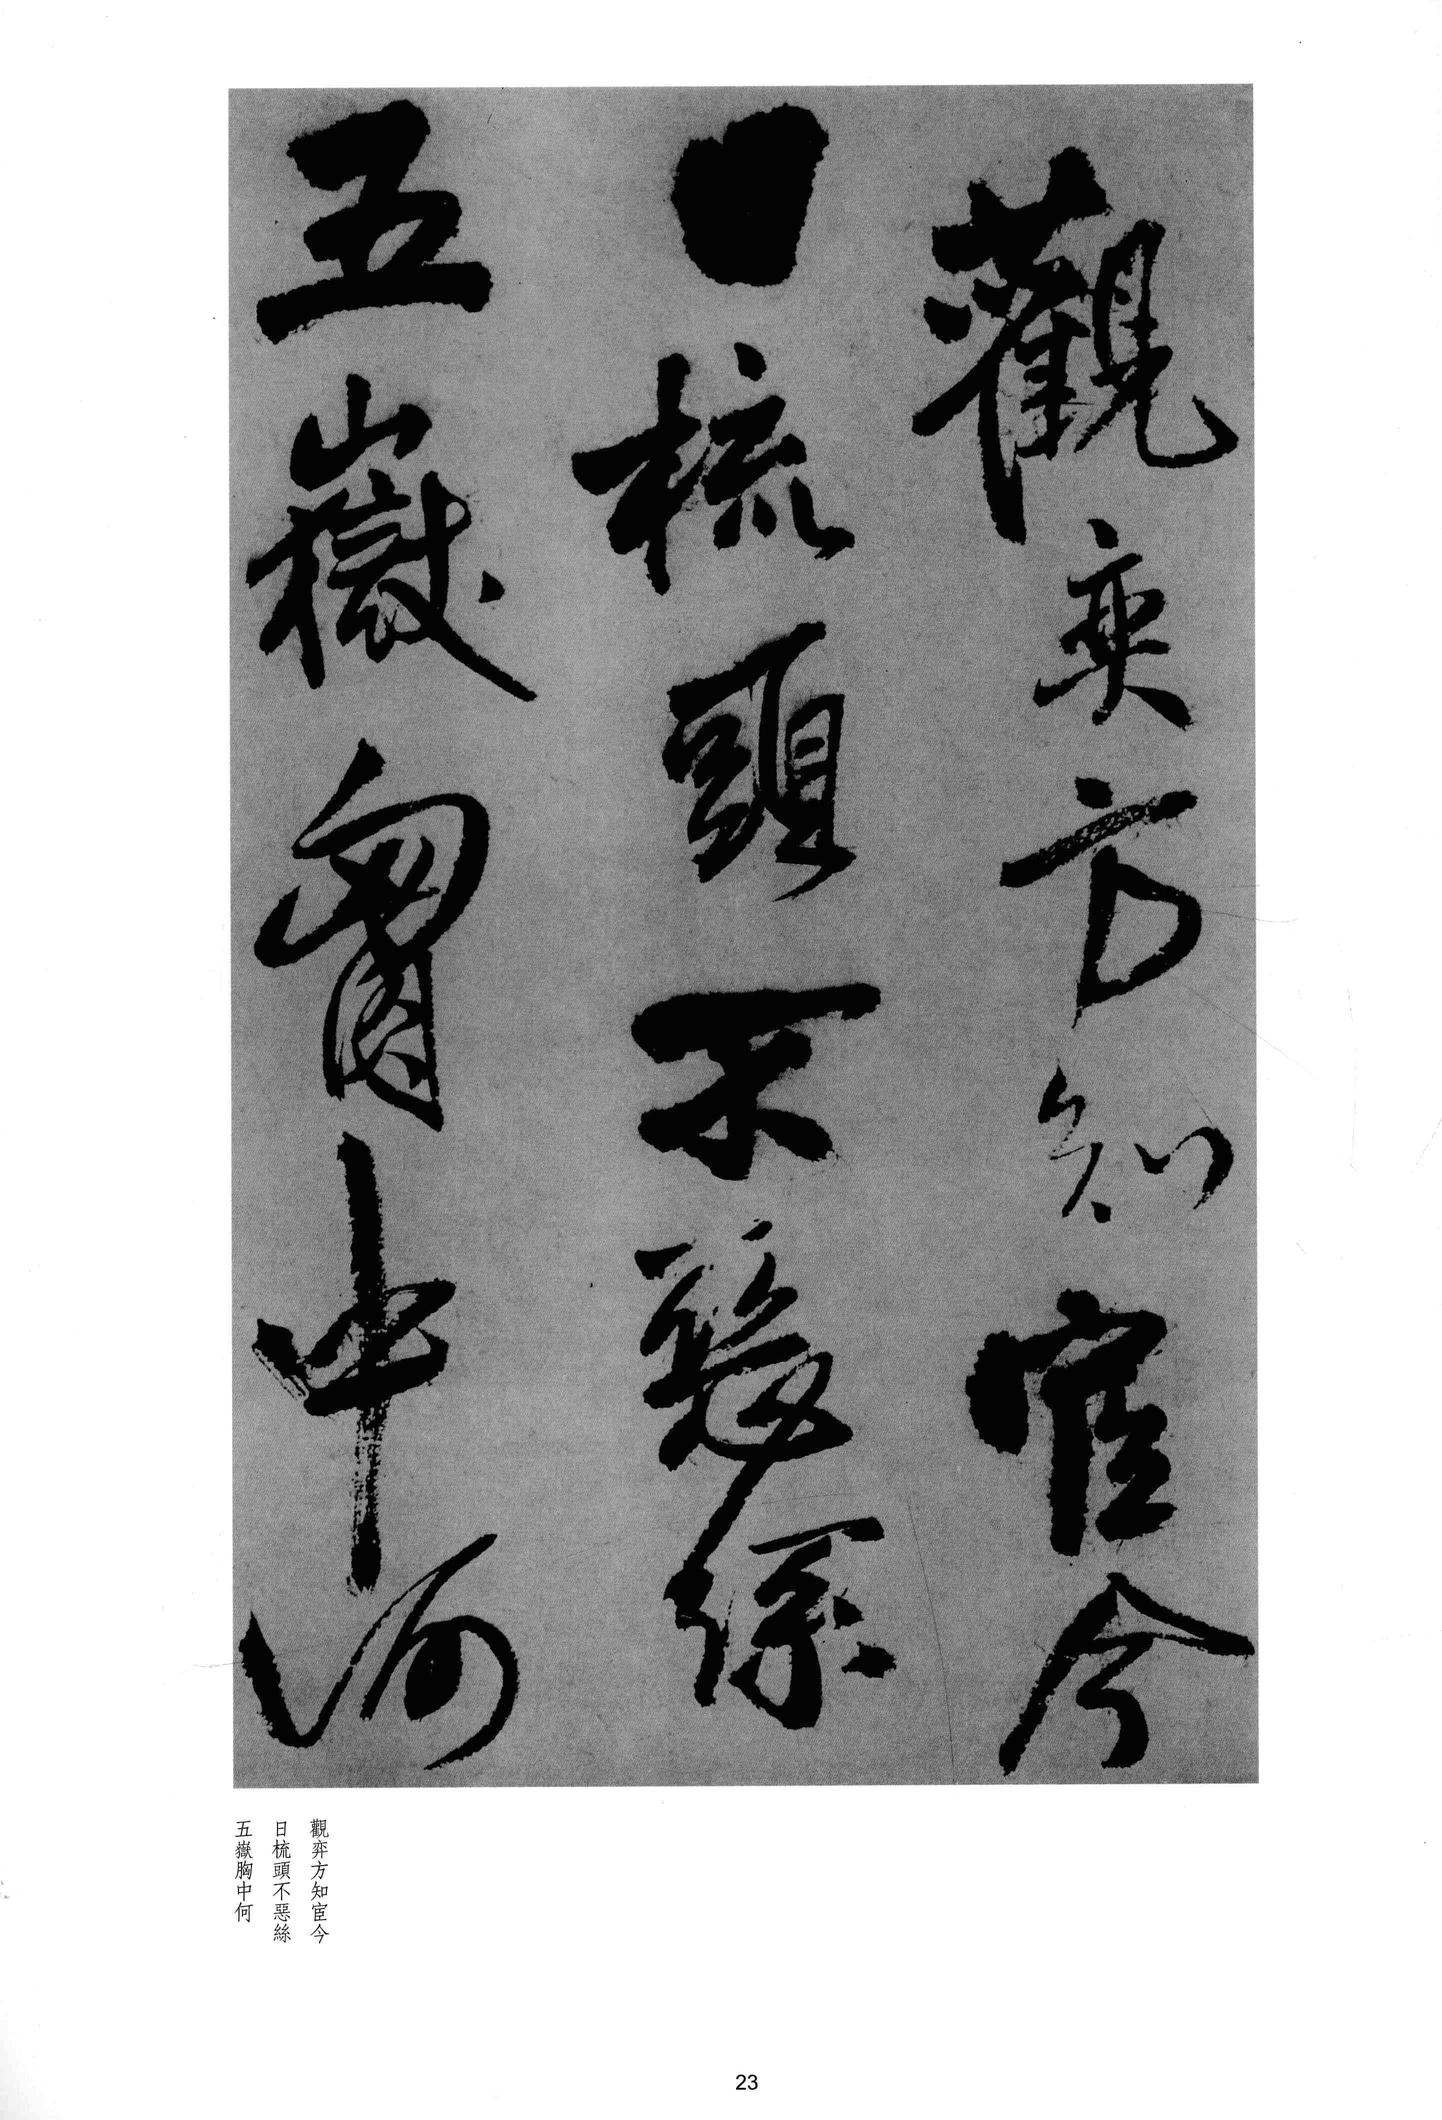 觀弈方知宦今
日梳頭不惡絲
五嶽胸中何
觀弈方知宦今
日梳頭不惡絲
五嶽胸中何
23